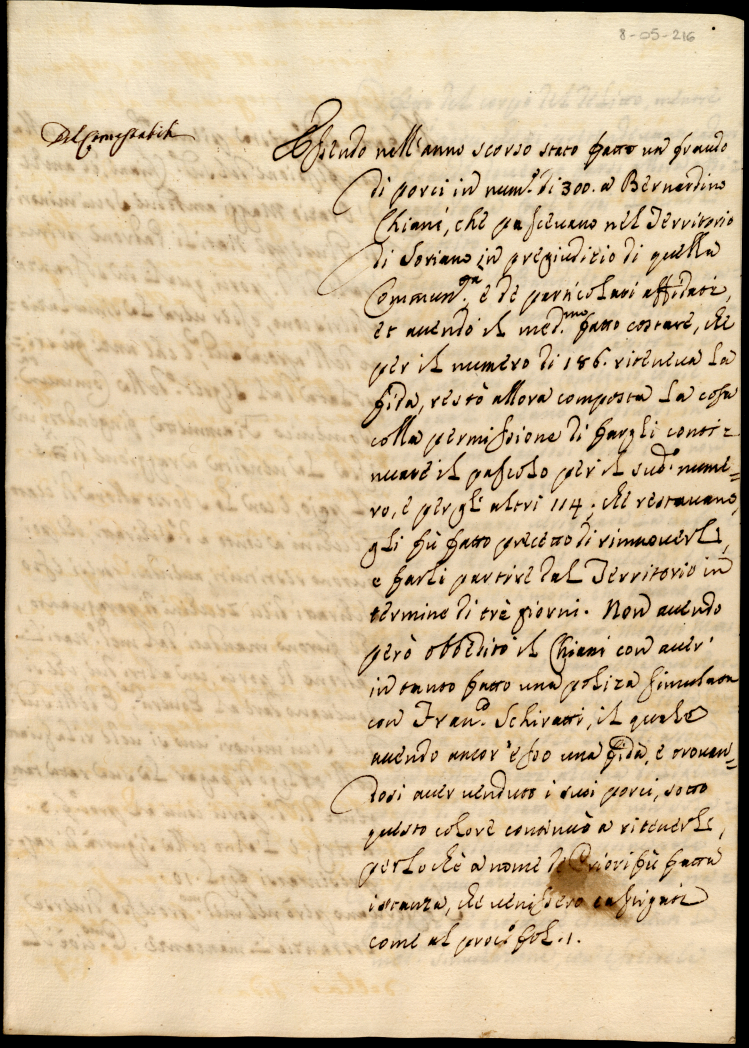 8-05-216
Al Comestabile
Essendo nell'anno scorso stato fatto un fraudo
di porci in num.º di 300. a Bernardino
Chiani, che pascevano nel Territorio
di Soriano in pregiuditio di quella
Commun.tà e de particolari affidati,
et avendo il med.mo fatto costare, che
per il numero di 186. riteneva la
fida, restò allora composta la cosa
colla permissione di fargli conti=
nuare il pascolo per il sud.º nume=
ro, e per gl'altri 114. che restavano,
gli fù fatto precetto di rimuoverli,
e farli partire dal Territorio in
termine di trè giorni. Non avendo
però obbedito il Chiani con aver'
in tanto fatto una poliza simulata
con Fran.º Schiratti, il quale
avendo ancor'esso una fida, e trovan=
dosi aver venduto i suoi porci, sotto
questo colore continuò a ritenerli,
perloche a nome de Priori fù fatta
istanza, che venissero castigati
come al proc.º fol. 1.